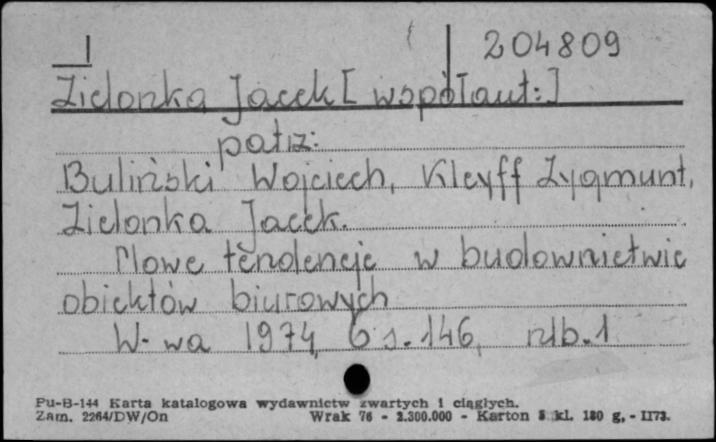 I 204809
Zielonka Jacek [współaut:]
patrz:
Buliński Wojciech, Kleyff Zygmunt,
Zielonka Jacek.
Nowe tendencje w budownictwie
obiektów biurowych
W-wa 1974, s. 146, nlb. 1
Pu-B-144 Karta katalogowa wydawnictw zwartych i ciągłych.
Zam. 2264/DW/On Wrak 76 - 2.300.000 - Karton 3 kl. 180 g, - II73.